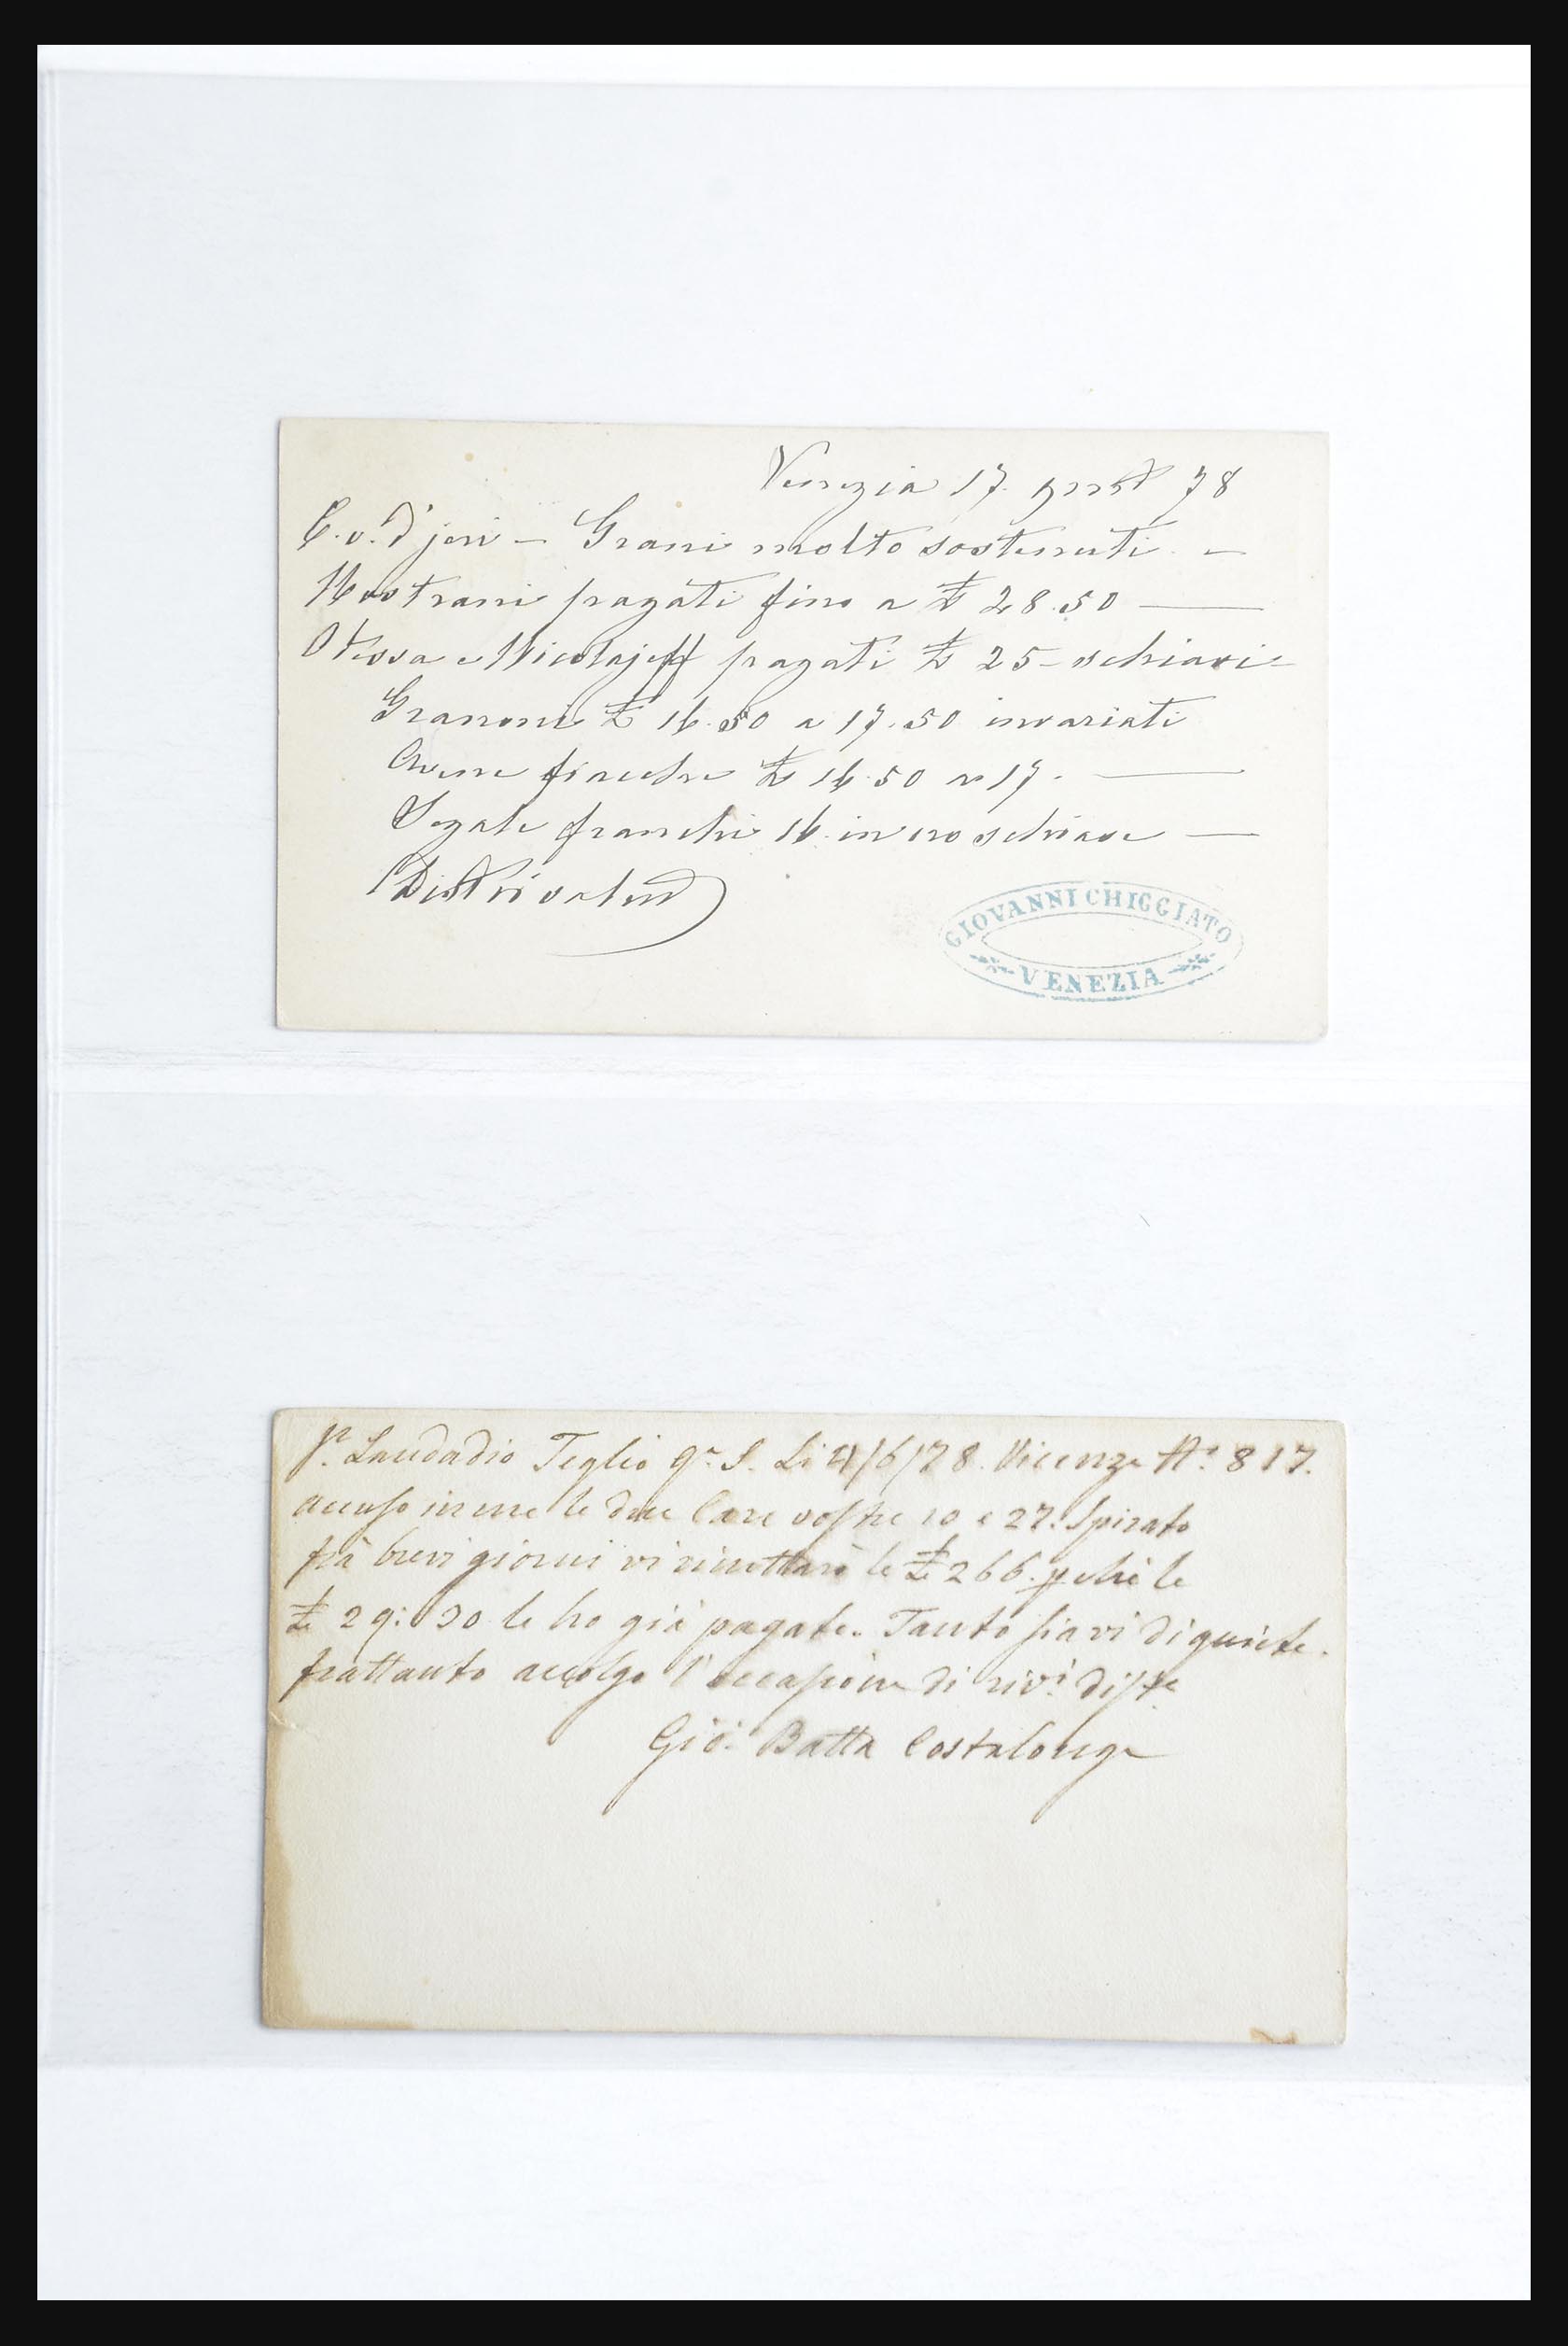 Venezia 17. 78
C. v. d'jeri – Grani molto sostenuti –
Nostrani pagati fino a £ 28.50 —
Odessa e Nicolajeff pagati £ 25 – schiavi –
Granoni £ 16.50 a 17.50 invariati
Avene fiacche £ 16.50 a 17. —
Segale franchi 16 in oro schiave —
GIOVANNI CHIGGIATO
VENEZIA
Sr. Laudadio Teglio qm. S. Li 4/6/78. Vicenza No. 817.
accuso in mie le due Care vostre 10 e 27. Spirato
frà brevi giorni vi rimetterò le £ 266. pchè le
£ 29:20 le ho già pagate. Tanto siavi di quiete.
frattanto accolgo l'occasione di rivi. diste
Gio: Batta Costalonga